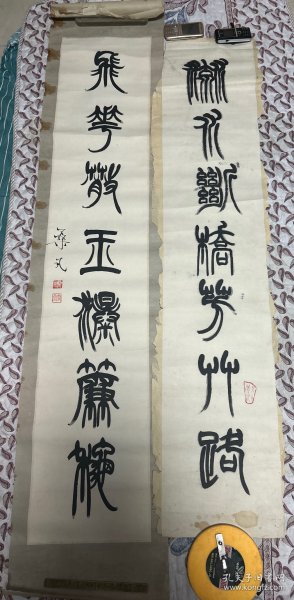 流水斷橋芳艸路
飛華散玉瀑簾
孔夫子旧书网